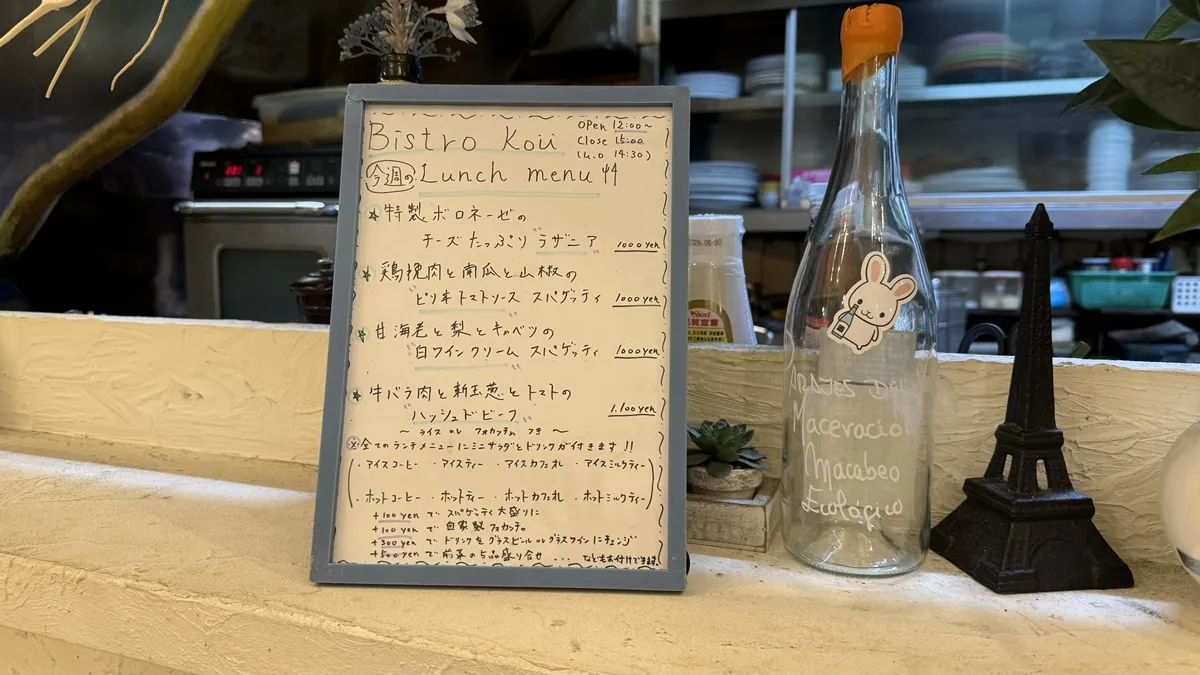 Bistro Koii
OPen 12:00〜
Close 15:00
(L.O 14:30)
今週の Lunch menu
特製ボロネーゼの
チーズたっぷり ラザニア 1000yen
鶏挽肉と南瓜と山椒の
"ピリ辛トマトソース スパゲッティ" 1000yen
甘海老と梨とキャベツの
"白ワインクリーム スパゲッティ" 1000yen
牛バラ肉と新玉葱とトマトの
"ハッシュドビーフ" 1.100yen
〜 ライス or フォカッチャ つき 〜
※全てのランチメニューにミニサラダとドリンクが付きます!!
(・アイスコーヒー ・アイスティー ・アイスカフェオレ ・アイスミルクティー
・ホットコーヒー ・ホットティー ・ホットカフェオレ ・ホットミルクティー)
+100yen で スパゲッティ大盛りに
+100yen で 自家製フォカッチャ
+300yen で ドリンクをグラスビール or グラスワインにチェンジ
+500yen で 前菜の5品盛り合せ ...
品質宣言
Maceració
Macabeo
Ecológico